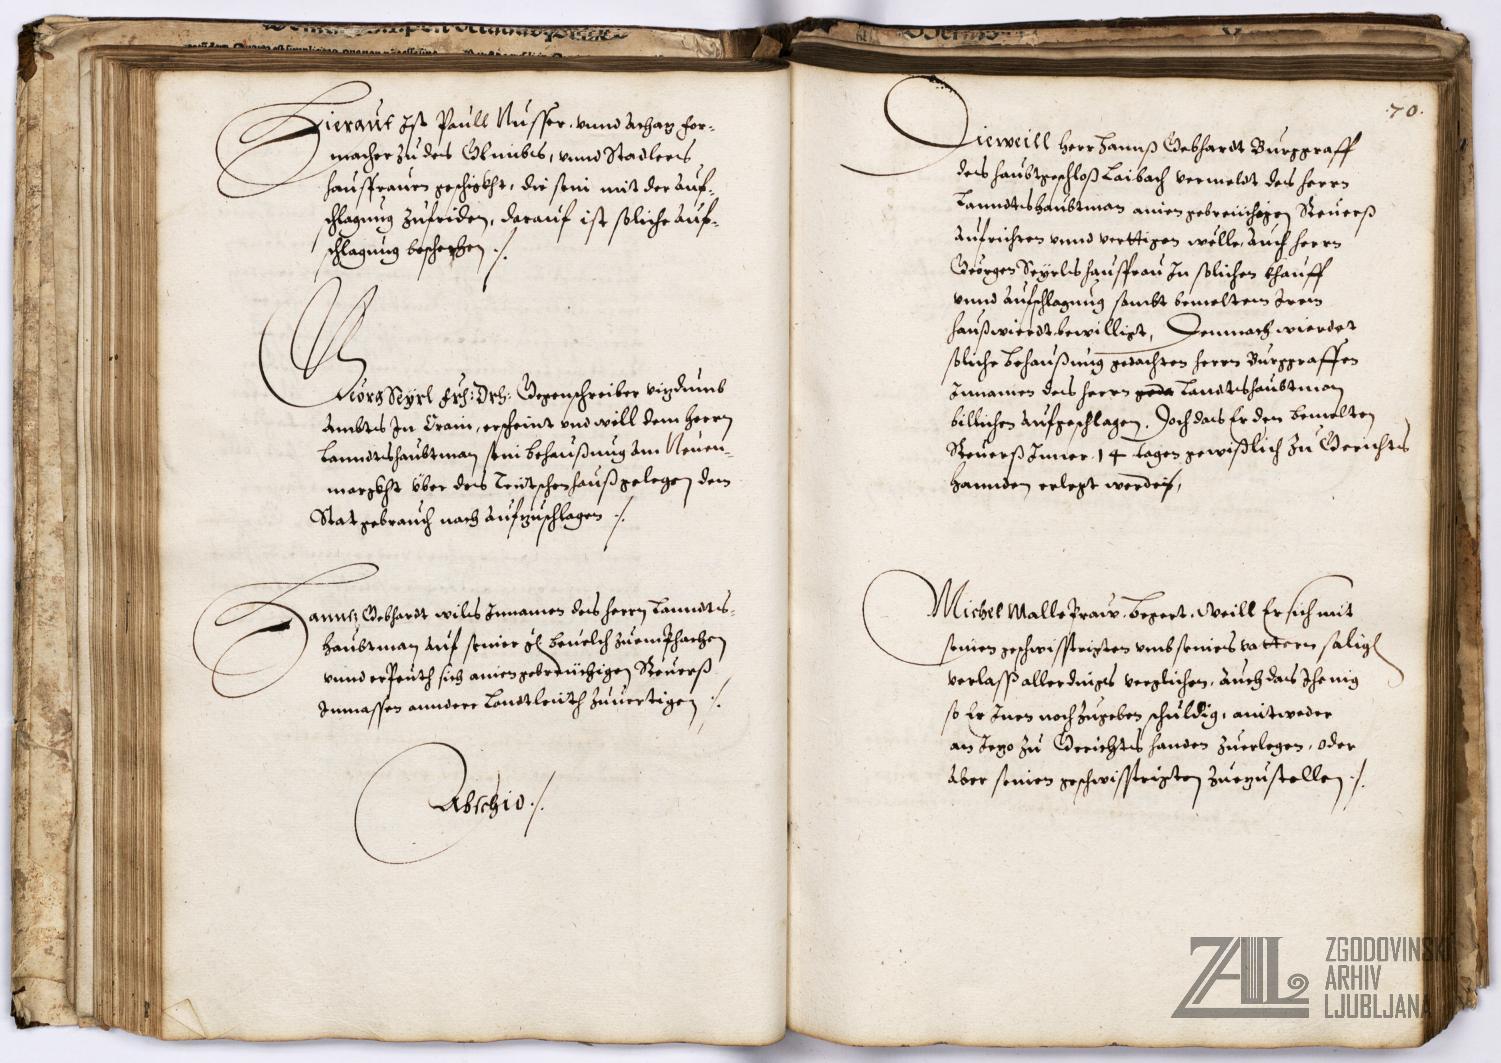 Hierauf Ist Paull Nusser, vnnd Achaz For-
macher zu des Glimbis, vnnd Stadlers
hausfrauen geschigkht, die sein mit der auf-
schlagung zufriden, darauf ist soliche auf-
schlagung beschehen ./.
Geörg Seyrl Frh: Drh: Gegenschreiber vizdumb
Ambts In Crain, erscheint vnd will dem herrn
Lanndtshaubtman sein behaußung am Neuen-
margkht über des Teütschen hauß gelegen dem
Stat gebrauch nach aufzuschlagen ./.
Hannß Gebhardt wils Innamen des herrn Lanndts-
haubtman auf seiner beuelch zuem
vnnd erpeuth sich ainen gebreüchigen Reuerß
Inmassen anndere Landtleüth zuuertigen ./.
Abschid ./.
70.
Dieweill herr Hannß Gebhardt Burggraff
des haubtgeschloß Laibach vermeldt des herrn
Lanndtshaubtman ainen gebreüchigen Reuerß
aufrichten vnnd verttigen wölle, auch herrn
Geörgen Seyrls hausfrau In solichen khauff
vnnd aufschlagung sambt bemeltem Irem
haußwierdt bewilligt, Demnach wierdet
soliche behaußung gedachten herrn Burggraffen
Innamen des herrn Landtshaubtman
billichen aufgeschlagen. Doch das Er den bemelten
Reuerß Inner 14 tagen gewißlich zu Gerichts
hannden erlegt werden,
Michel Malleprau. begert, Weill Er sich mit
seinen geschwisstrigten vmb seines vattern salig
verlaß allerdings verglichen, auch das Ihenig
so Er Inen noch zugeben schuldig, aintweder
an Iezo zu Gerichts handen zuerlegen, oder
aber seinen geschwisstrigten zuezustellen ./.
ZAL
ZGODOVINSKI
ARHIV
LJUBLJANA